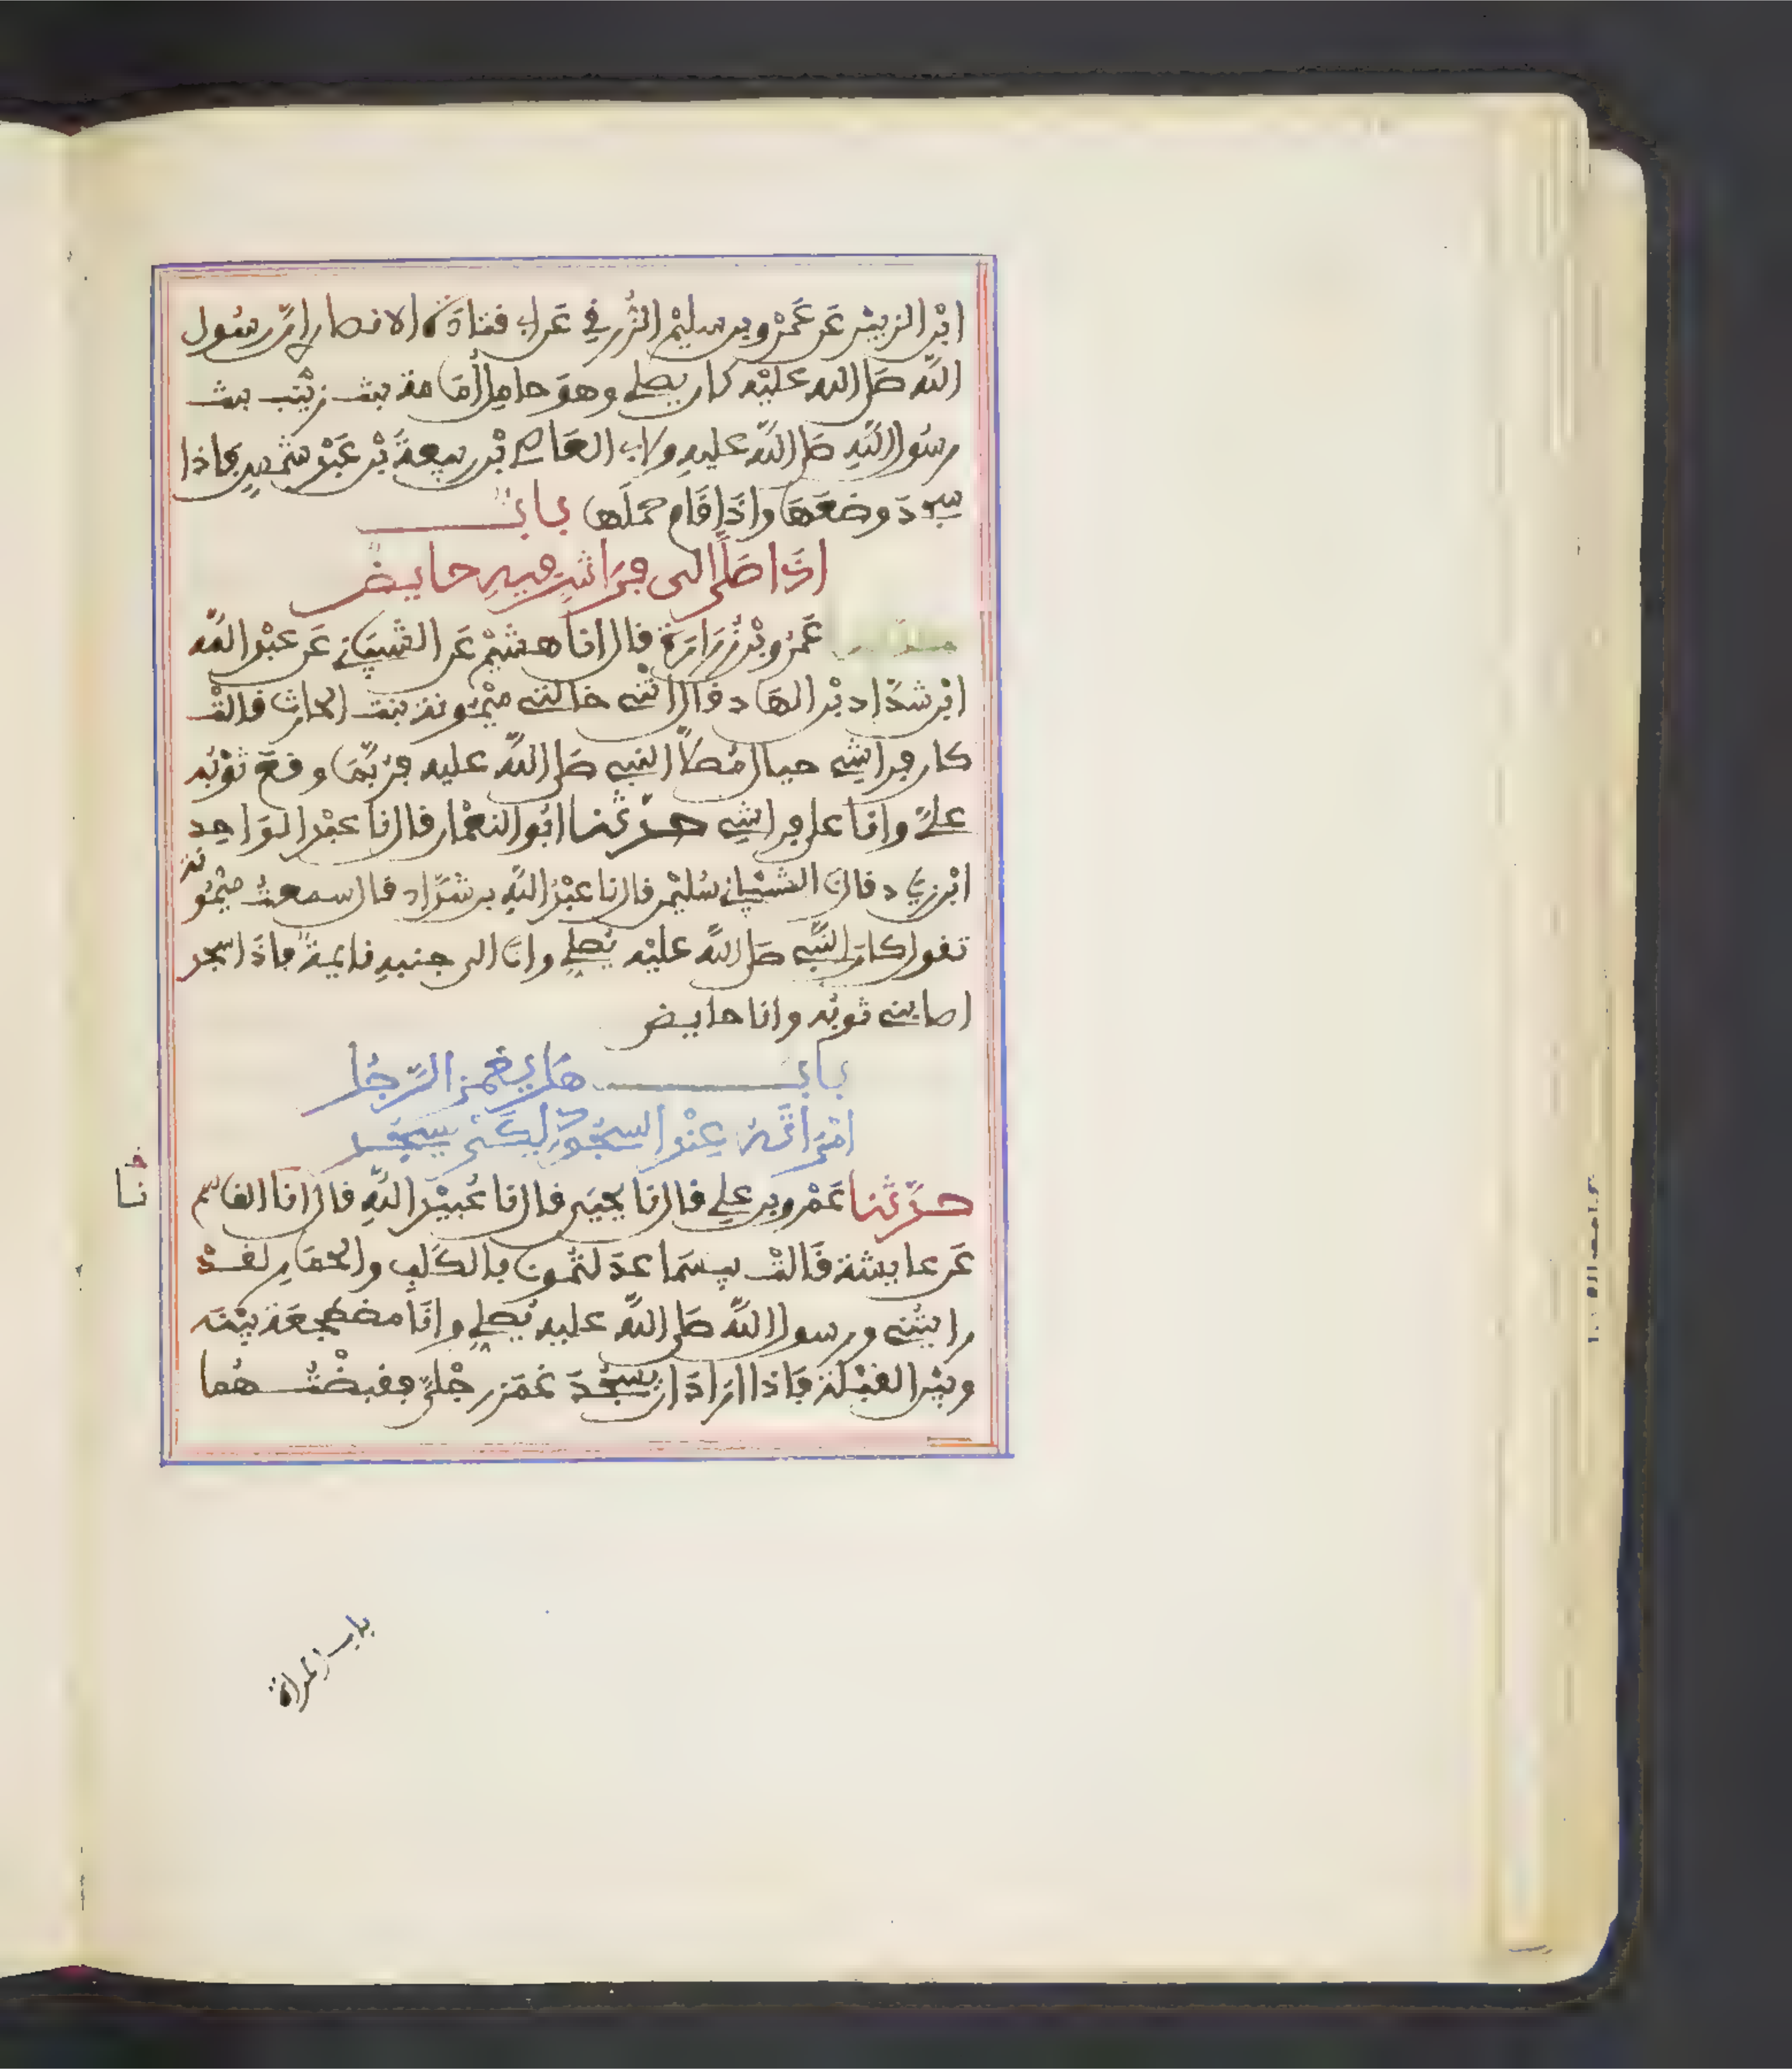 ابْن الزبيْر عَن عَمْرو بن سليْم الزُّرَفي عَن ابي قتادَة الانصاري انَّ رسُول
اللَّه صَلى الله عليْه كان يصلي وهوَ حامِل اُمَامة بنت زيْنَب بنت
رسُول اللَّهِ صَلى اللَّه عليهِ ولابي العَاصي بْن ربيعةَ بْن عَبْد شمْسٍ فاذا
سجدَ وضعَهَا واذَا قَام حمَلَها بابٌ
اذَا صَلَّى الى فِرَاشٍ فيهِ حايض
عَمْرو بْن زُرَارَة قال انا هشيْم عَن الشيبَاني عَن عبْد اللَّه
ابْن شدَّاد بْن الهَاد قال اخبرتْني خالتي ميْمُونة بنت الحارث قالتْ
كان فراشِي حيال مُصلَّى النبي صَلى اللَّه عليه فرُبَّمَا وقعَ ثوْبُه
عليَّ وانَا على فراشِي حدّثنا ابُو النعْمان قال نا عبْد الوَاحِد
ابْن زيَاد قال نا الشيْبَاني سُليْمن قال نا عبْدُ اللَّهِ بن شدَّاد قال سمعتُ ميْمُونة
تقول كانَ النَّبي صَلى اللَّه عليْه يُصلي وانَا الى جنبهِ نايمةٌ فاذَا سجد
اصابني ثوبُه وانا حايض
بابٌ هَل يغمز الرَّجُل
امْرَاتَهُ عِنْد السجُود لكَيْ يسجُد
حدَّثنا عَمْرو بن علي قال نا يحيَى قال نا عُبيْد اللَّهِ قال نا القاسم
نا
عَن عايشة قَالتْ بيسَمَا عدَلتُمونا بالكَلبِ والحمَارِ لقدْ
رايتُني ورسول اللَّه صَلى اللَّه عليه يُصلي وانَا مضطجعَة بيْنَه
وبيْن القبْلة فاذا ارَادَ ان يسجُدَ غمَز رجْليَّ فقبضْتُهُما
باب المراة